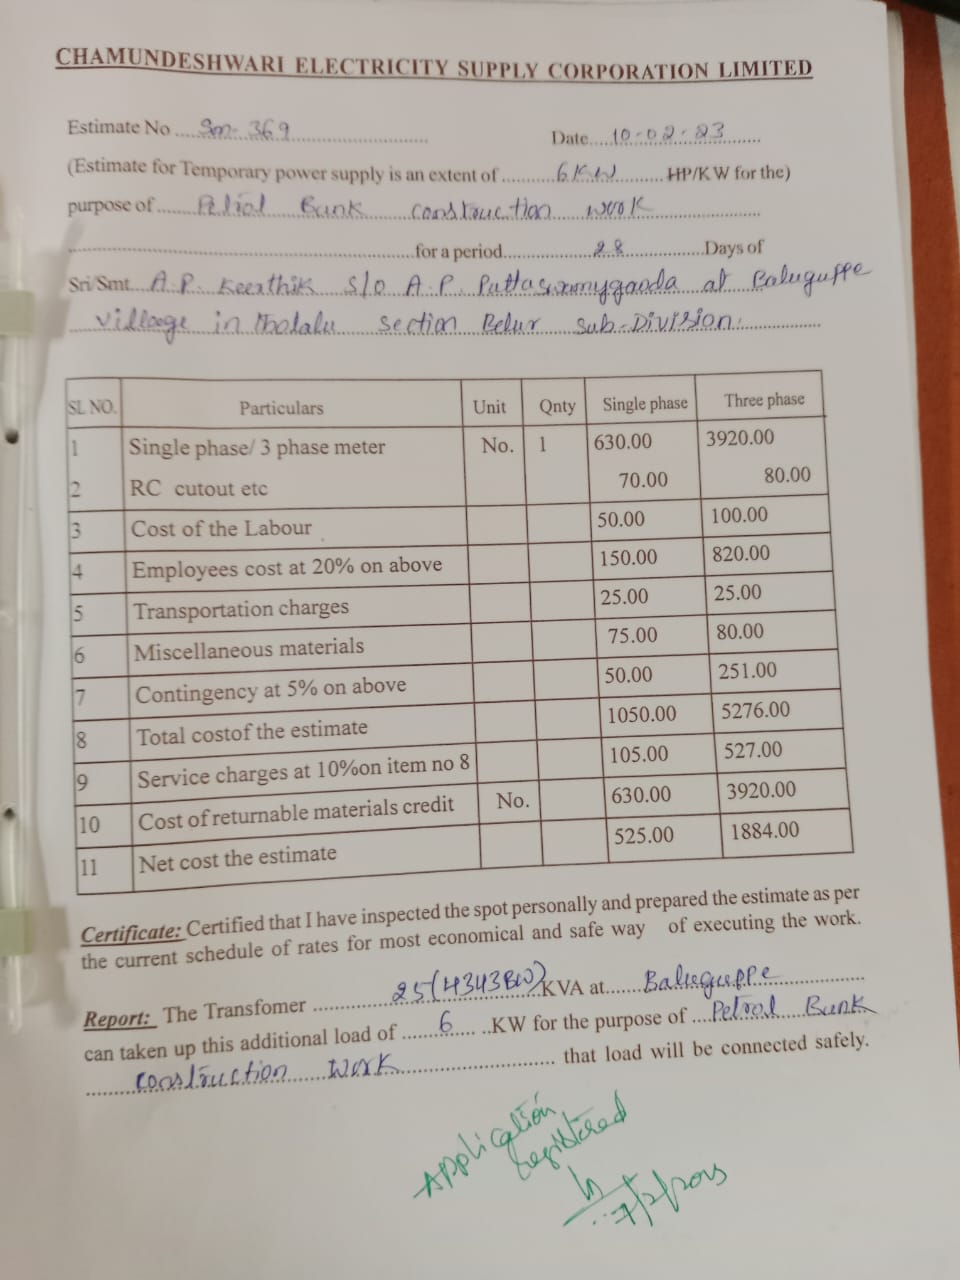 CHAMUNDESHWARI ELECTRICITY SUPPLY CORPORATION LIMITED
Estimate No ..... Sm- 369 .....
Date..... 10-02-23 .....
(Estimate for Temporary power supply is an extent of ..... 6KW ..... HP/KW for the)
purpose of ..... Petrol Bunk construction work .....
..... for a period ..... 28 ..... Days of
Sri/Smt... A.P. Keerthik S/o A.P. Puttaswamygowda at Baluguppe
village in Section Belur Sub-Division.
SL NO. Particulars Unit Qnty Single phase Three phase
1 Single phase/ 3 phase meter No. 1 630.00 3920.00
2 RC cutout etc 70.00 80.00
3 Cost of the Labour 50.00 100.00
4 Employees cost at 20% on above 150.00 820.00
5 Transportation charges 25.00 25.00
6 Miscellaneous materials 75.00 80.00
7 Contingency at 5% on above 50.00 251.00
8 Total costof the estimate 1050.00 5276.00
9 Service charges at 10%on item no 8 105.00 527.00
10 Cost of returnable materials credit No. 630.00 3920.00
11 Net cost the estimate 525.00 1884.00
Certificate: Certified that I have inspected the spot personally and prepared the estimate as per
the current schedule of rates for most economical and safe way of executing the work.
Report: The Transfomer ..... 25 ..... KVA at..... Baluguppe .....
can taken up this additional load of ..... 6 ..... KW for the purpose of .... Petrol Bunk
construction work ..... that load will be connected safely.
Application
registered